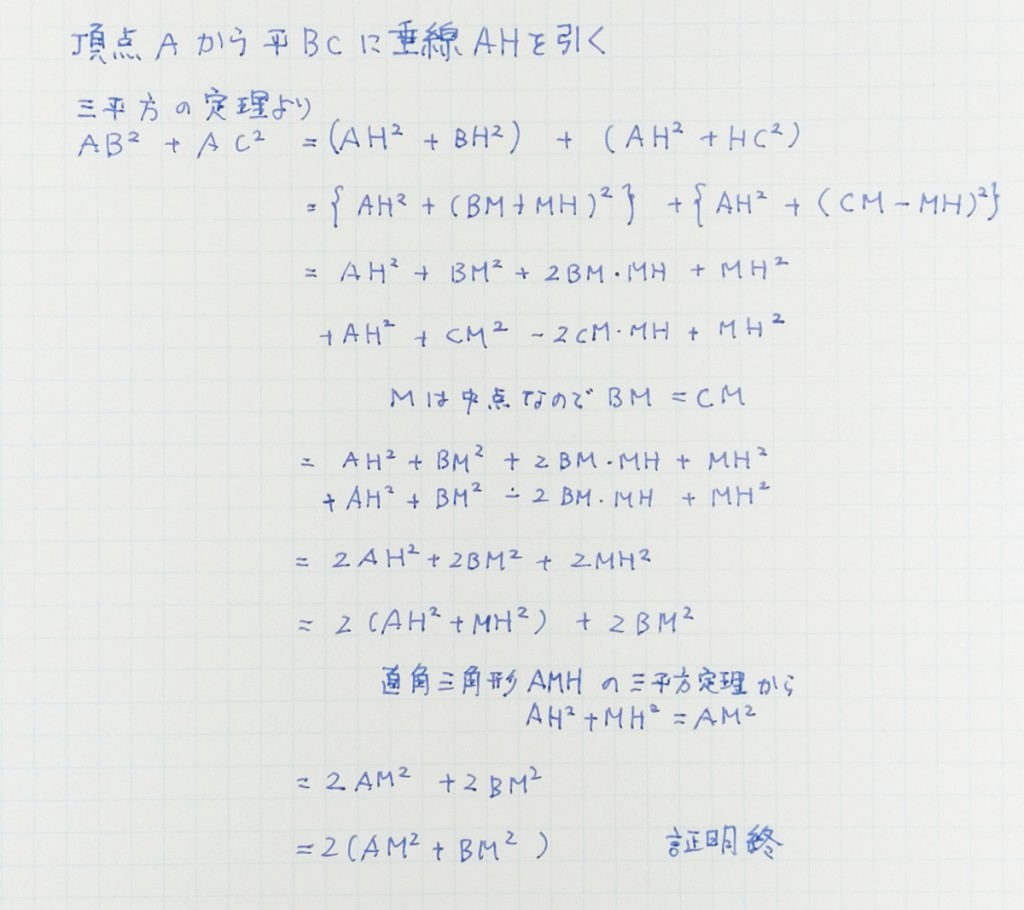 頂点 A から 平 BC に 垂線 AH を 引く
三平方 の 定理より
AB² + AC² = (AH² + BH²) + (AH² + HC²)
= { AH² + (BM+MH)²} + { AH² + (CM-MH)²}
= AH² + BM² + 2BM・MH + MH²
+AH² + CM² - 2CM・MH + MH²
M は 中点 なので BM = CM
= AH² + BM² + 2BM・MH + MH²
+ AH² + BM² - 2BM・MH + MH²
= 2AH² + 2BM² + 2MH²
= 2(AH² + MH²) + 2BM²
直角三角形 AMH の三平方定理から
AH² + MH² = AM²
= 2AM² + 2BM²
= 2(AM² + BM²) 証明終